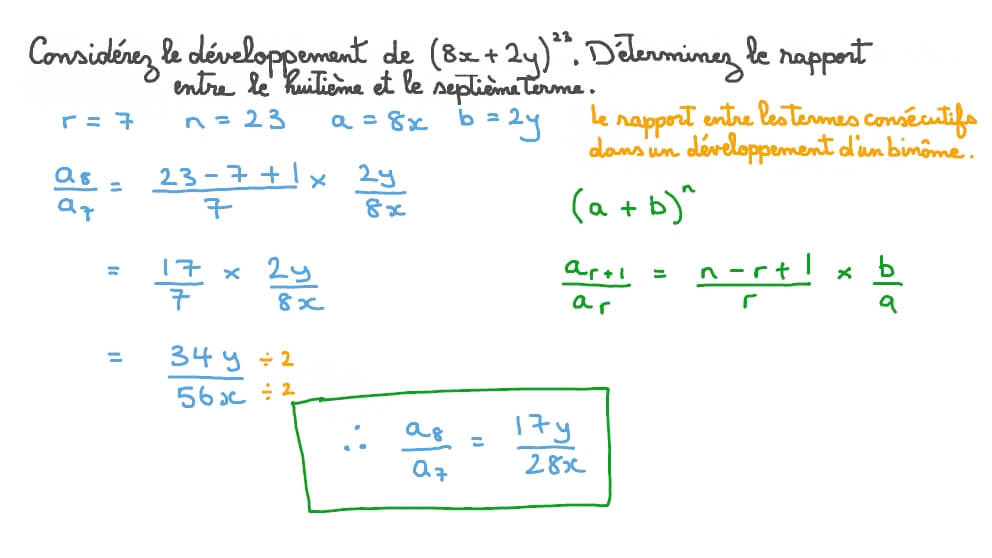 Considérez le développement de (8x + 2y)²³. Déterminez le rapport
entre le huitième et le septième terme.
r = 7 n = 23 a = 8x b = 2y
le rapport entre les termes consécutifs
dans un développement d'un binôme.
a₈/a₇ = (23 - 7 + 1)/7 × 2y/8x
= 17/7 × 2y/8x
= 34y/56x ÷2 ÷2
∴ a₈/a₇ = 17y/28x
(a + b)ⁿ
aᵣ₊₁/aᵣ = (n - r + 1)/r × b/a